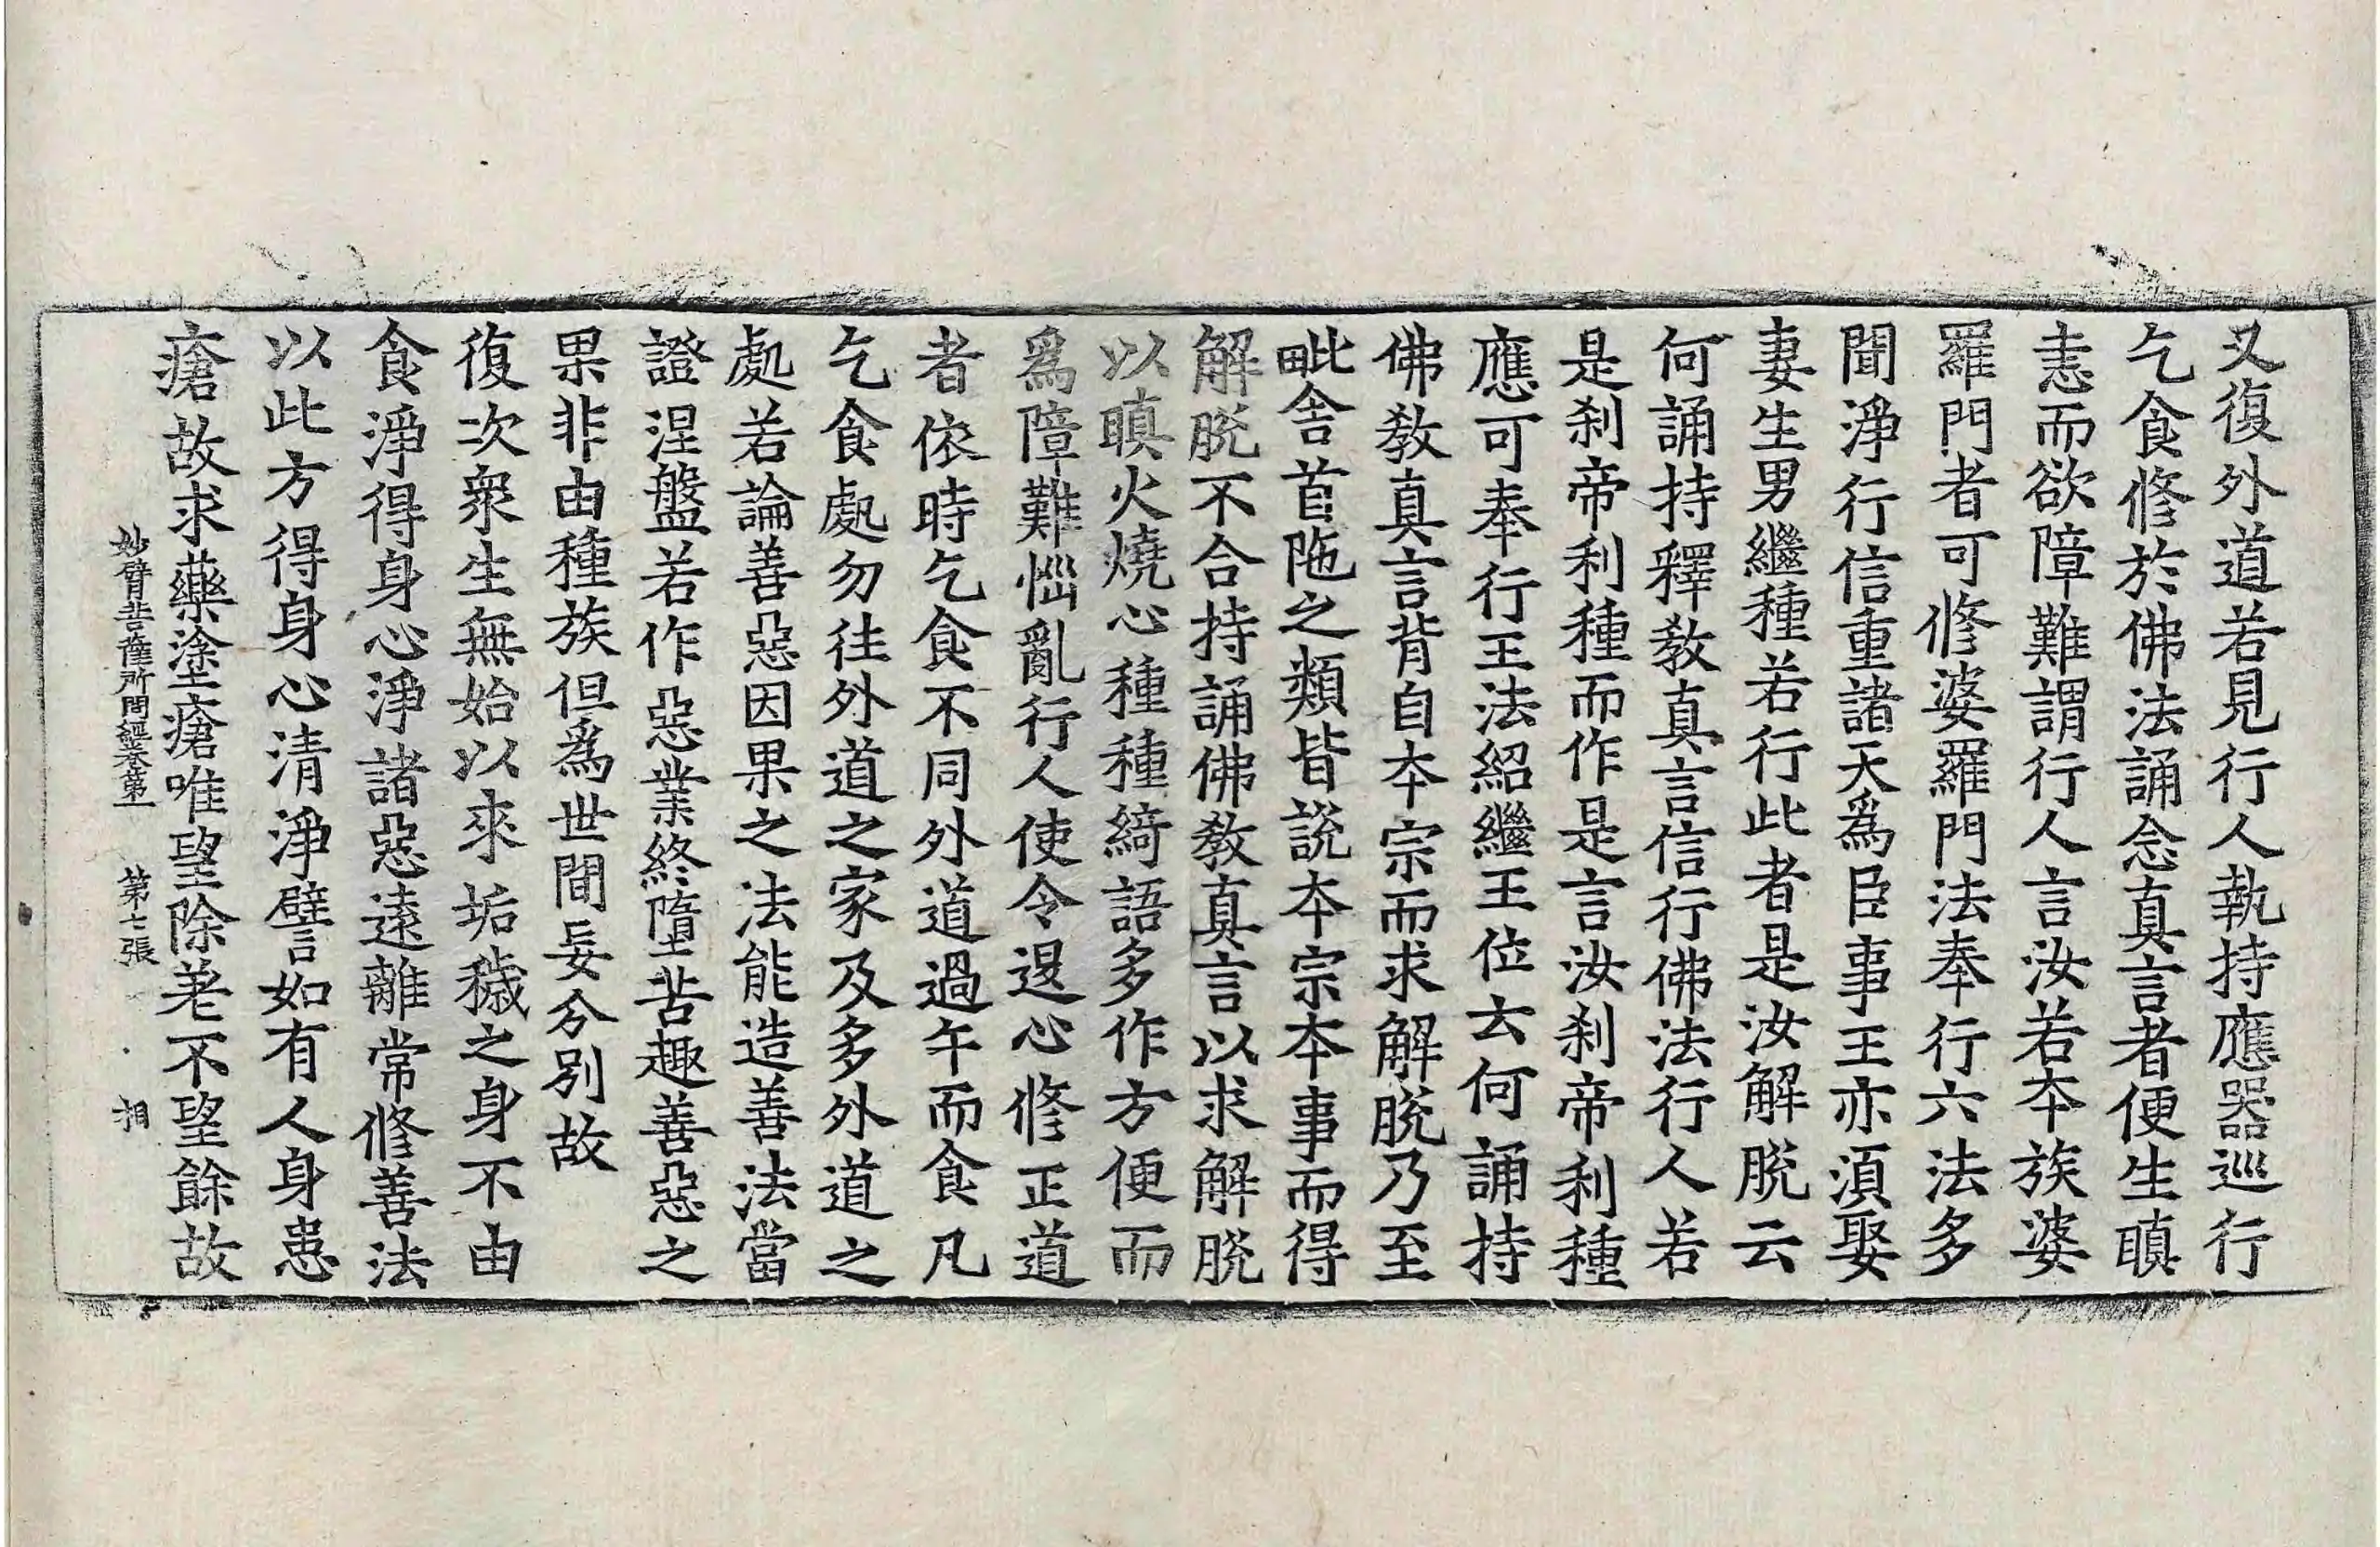 又復外道若見行人執持應器巡行
乞食修於佛法誦念真言者便生瞋
恚而欲障難謂行人言汝若本族婆
羅門者可修婆羅門法奉行六法多
聞淨行信重諸天爲臣事王亦湏娶
妻生男繼種若行此者是汝解脫云
何誦持釋教真言信行佛法行人若
是刹帝利種而作是言汝刹帝利種
應可奉行王法紹繼王位云何誦持
佛教真言背自本宗而求解脫乃至
毗舍首陁之類皆說本宗本事而得
解脫不合持誦佛教真言以求解脫
以瞋火燒心種種綺語多作方便而
爲障難惱亂行人使令退心修正道
者依時乞食不同外道過午而食凡
乞食處勿往外道之家及多外道之
處若論善惡因果之法能造善法當
證涅盤若作惡業終墮苦趣善惡之
果非由種族但爲世間妄分別故
復次衆生無始以來垢穢之身不由
食淨得身心淨諸惡遠離常修善法
以此方得身心清淨譬如有人身患
瘡故求藥塗瘡唯望除差不望餘故
妙臂菩薩所問經卷第一 第七張 相